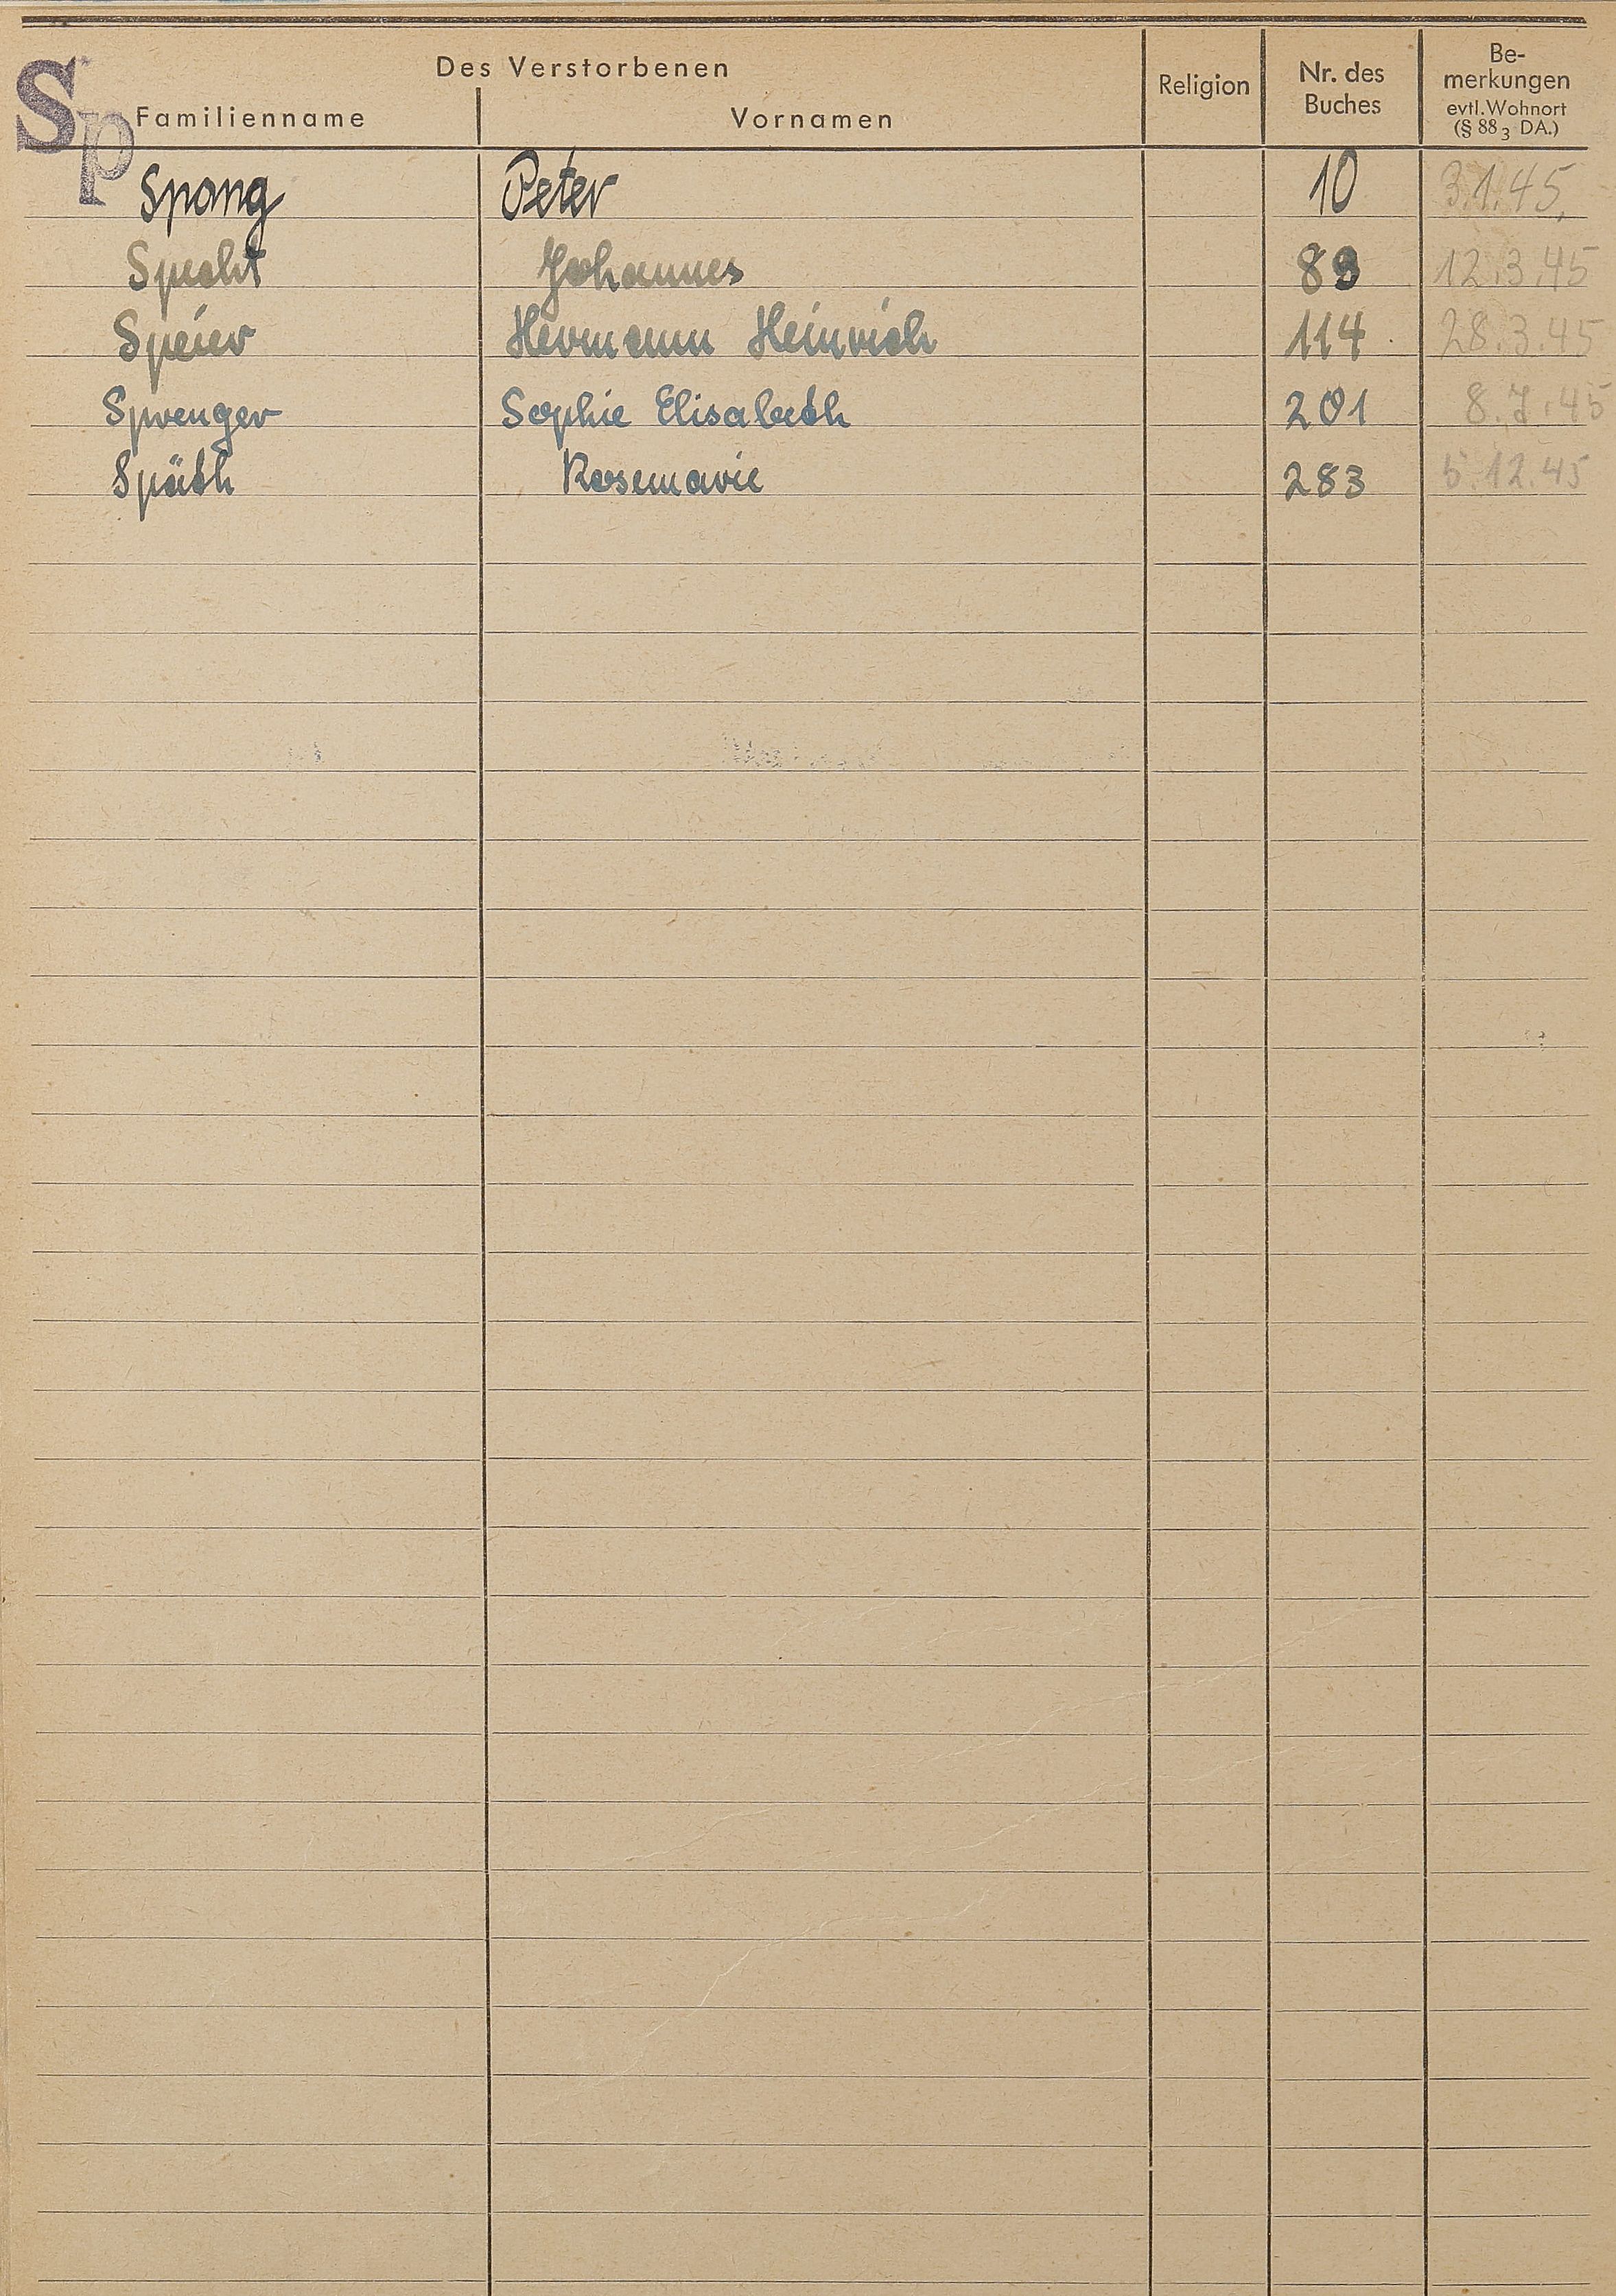 Sp
Des Verstorbenen
Familienname Vornamen Religion Nr. des Buches Be-merkungen evtl. Wohnort (§ 88 3 DA.)
Spang Peter 10 3.1.45.
Specht Johannes 89 12.3.45
Speier Hermann Heinrich 114 28.3.45
Sprenger Sophie Elisabeth 201 8.7.45
Späth Rosemarie 283 5.12.45